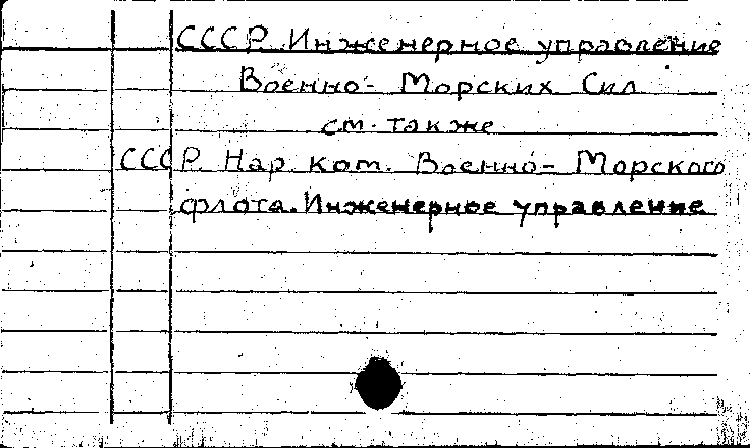 СССР. Инженерное управление
Военно-Морских Сил
см. также
СССР. Нар. ком. Военно-Морского
флота. Инженерное управление